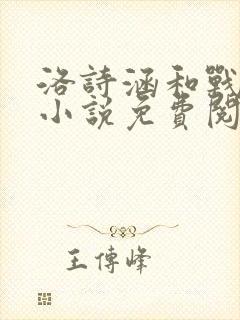 洛詩涵和戰
小說免費閱
王傳峰